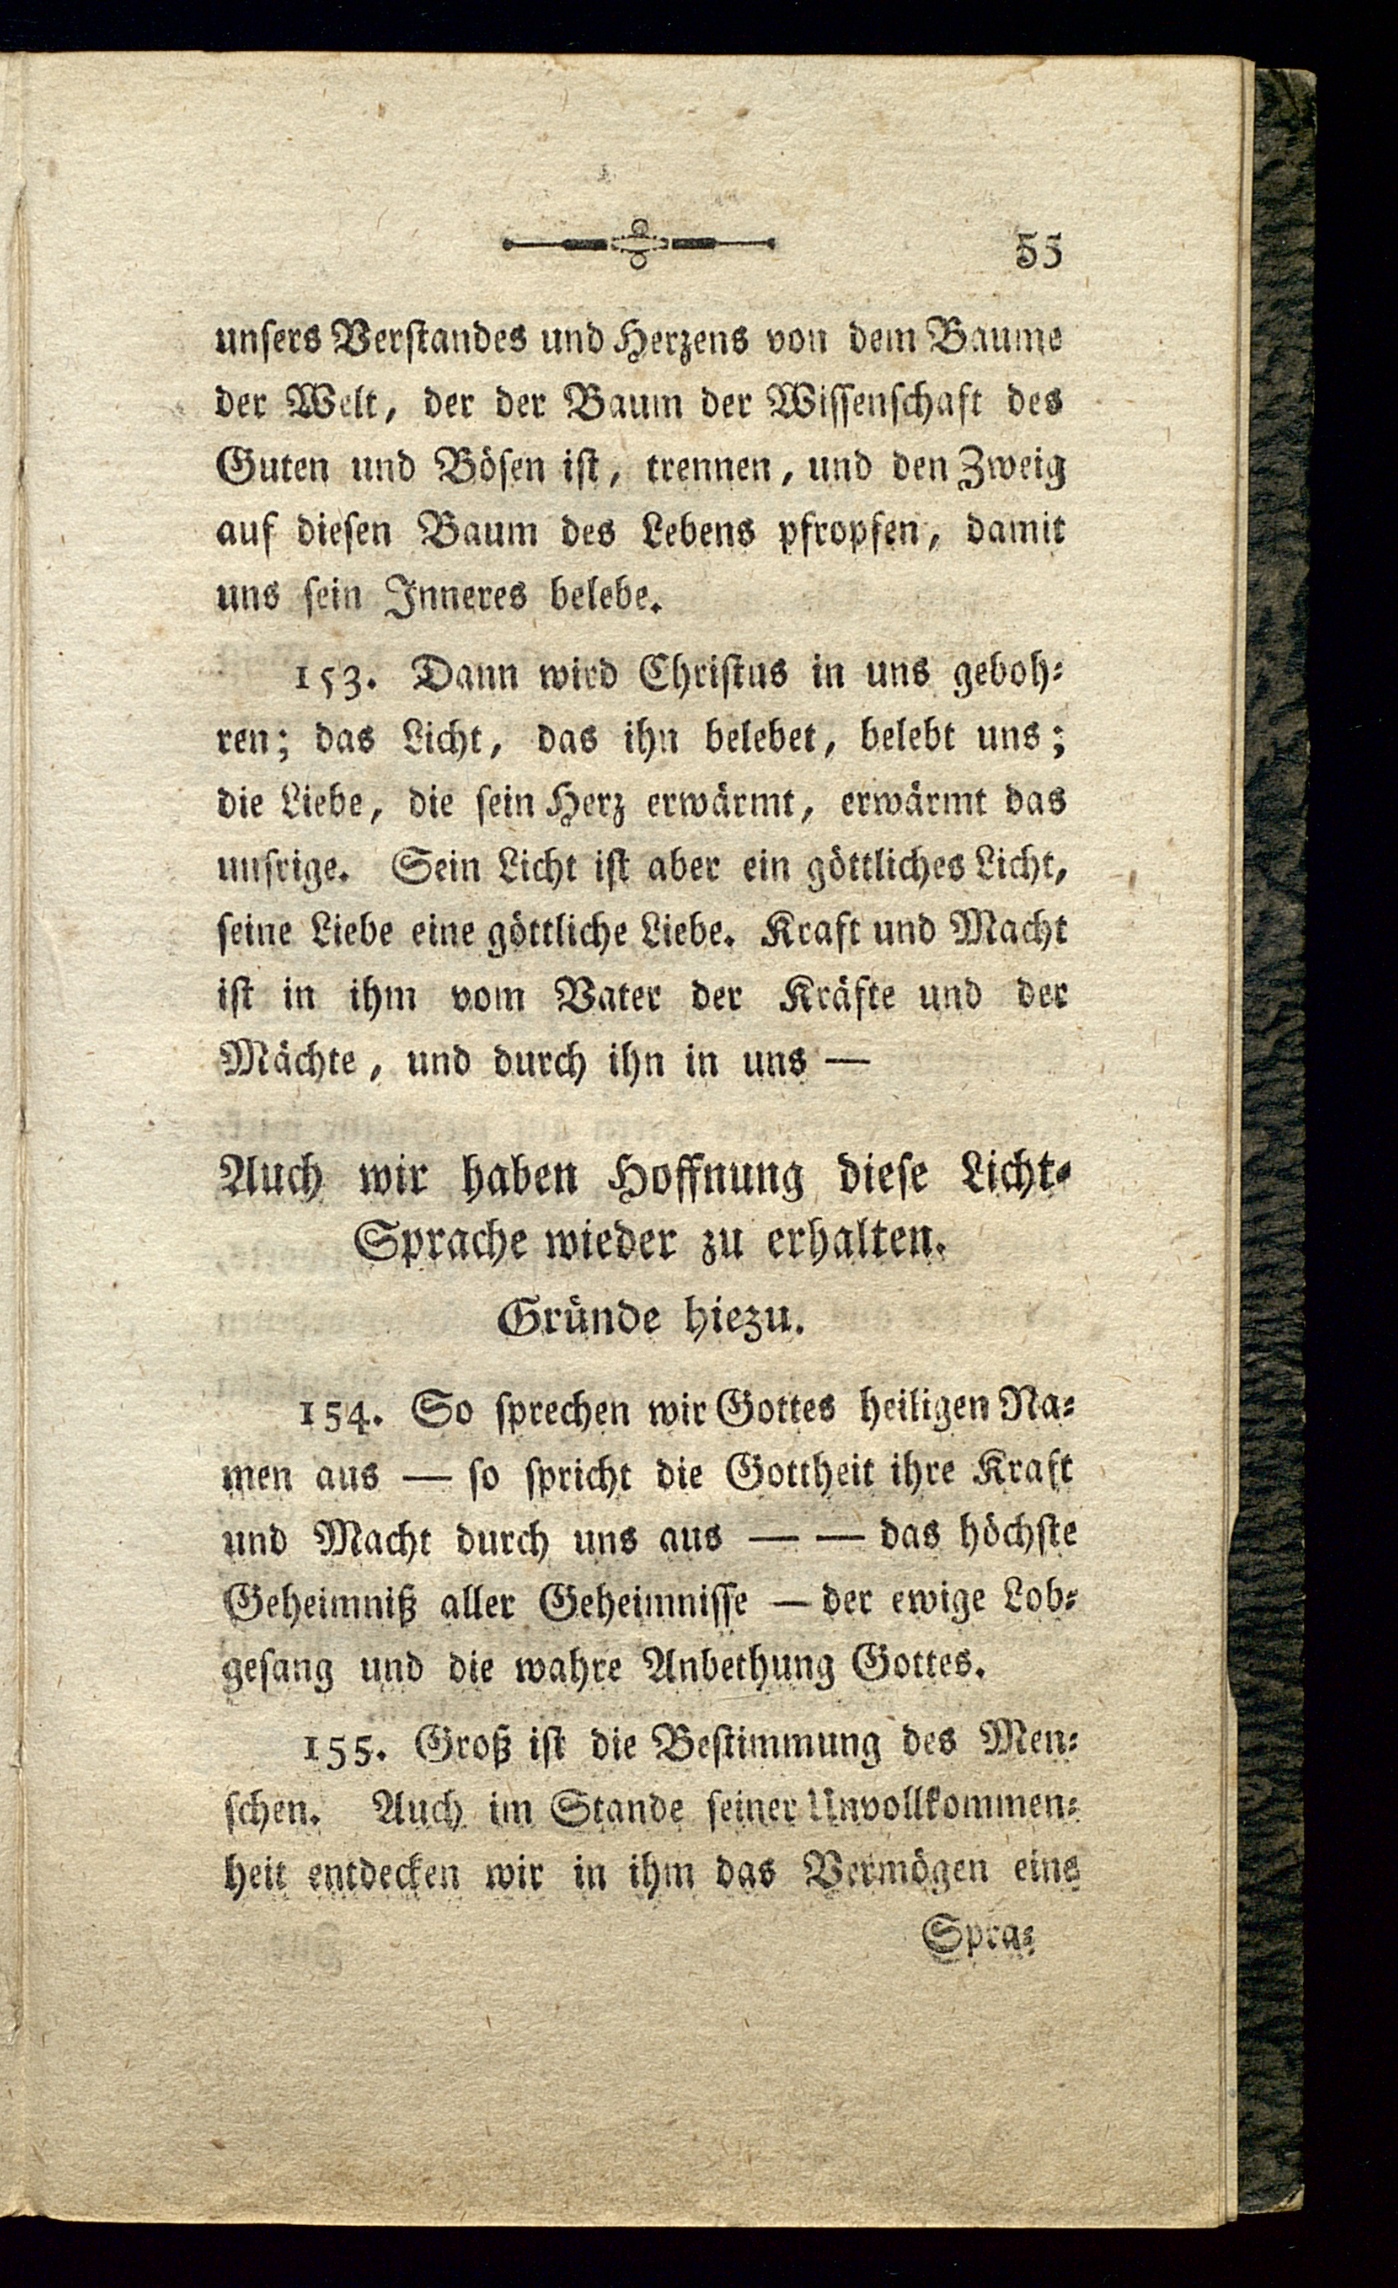 55
unsers Verstandes und Herzens von dem Baume
der Welt, der der Baum der Wissenschaft des
Guten und Bösen ist, trennen, und den Zweig
auf diesen Baum des Lebens pfropfen, damit
uns sein Inneres belebe.
153. Dann wird Christus in uns geboh-
ren; das Licht, das ihn belebet, belebt uns;
die Liebe, die sein Herz erwärmt, erwärmt das
unsrige. Sein Licht ist aber ein göttliches Licht,
seine Liebe eine göttliche Liebe. Kraft und Macht
ist in ihm vom Vater der Kräfte und der
Mächte, und durch ihn in uns —
Auch wir haben Hoffnung diese Licht-
Sprache wieder zu erhalten.
Gründe hiezu.
154. So sprechen wir Gottes heiligen Na-
men aus — so spricht die Gottheit ihre Kraft
und Macht durch uns aus — — das höchste
Geheimniß aller Geheimnisse — der ewige Lob-
gesang und die wahre Anbethung Gottes.
155. Groß ist die Bestimmung des Men-
schen. Auch im Stande seiner Unvollkommen-
heit entdecken wir in ihm das Vermögen eine
Spra-